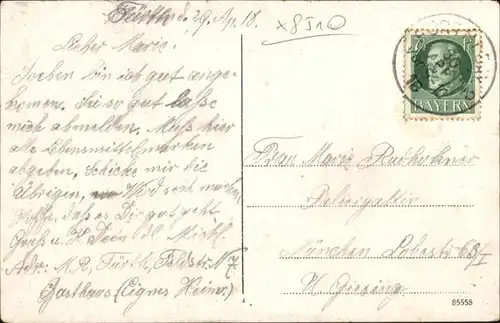 Fürth d. 29. Ap. 18.
Liebe Marie!
Soeben bin ich gut ange-
kommen. Sei so gut lasse
mich abmelden. Muß hier
alle Lebensmittelmarken
abgeben, Schicke mir die
Übrigen, Wird sech
Hoffe, daß es Dir gut geht
Gruß u. K Dein dl. Michl.
Adr: M. R. Fürth, Feldstr. N 7
Gasthaus (Eignes Heim)
x85n0
7 Pf
BAYERN
Frau Marie
München 68/I
U Giesing
85558